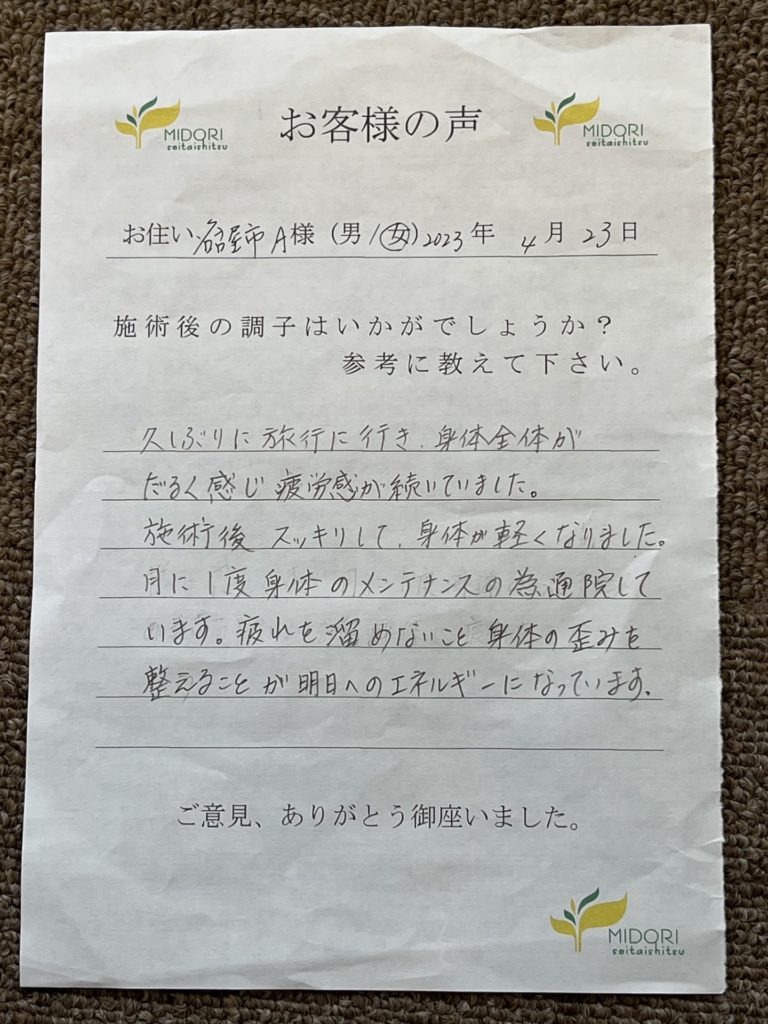 MIDORI
seitaishitsu
お客様の声
MIDORI
seitaishitsu
お住い 名古屋市 A様 (男/女) 2023年 4月 23日
施術後の調子はいかがでしょうか?
参考に教えて下さい。
久しぶりに旅行に行き、身体全体が
だるく感じ疲労感が続いていました。
施術後 スッキリして、身体が軽くなりました。
月に1度身体のメンテナンスの為通院して
います。疲れを溜めないこと 身体の歪みを
整えることが明日へのエネルギーになっています。
ご意見、ありがとう御座いました。
MIDORI
seitaishitsu